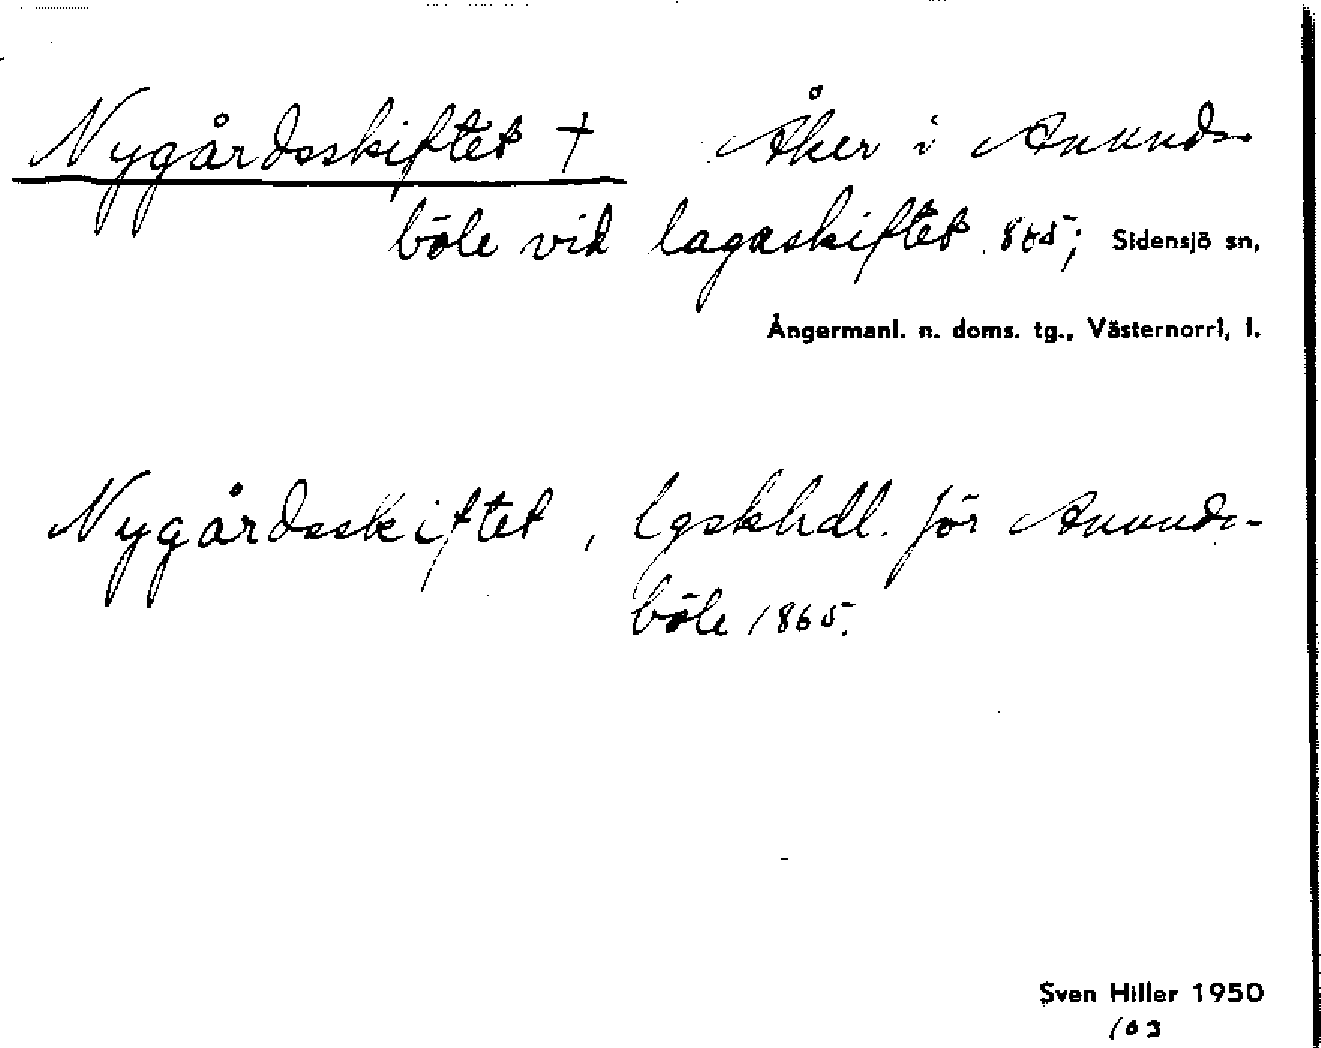 Nygårdsskiftet † Åker i Anunds-
böle vid lagaskiftet 1865; Sidensjö sn,
Ångermanl. n. doms. tg., Västernorrl, l.
Nygårdsskiftet, lgskhdl. för Anunds-
böle 1865.
Sven Hiller 1950
103